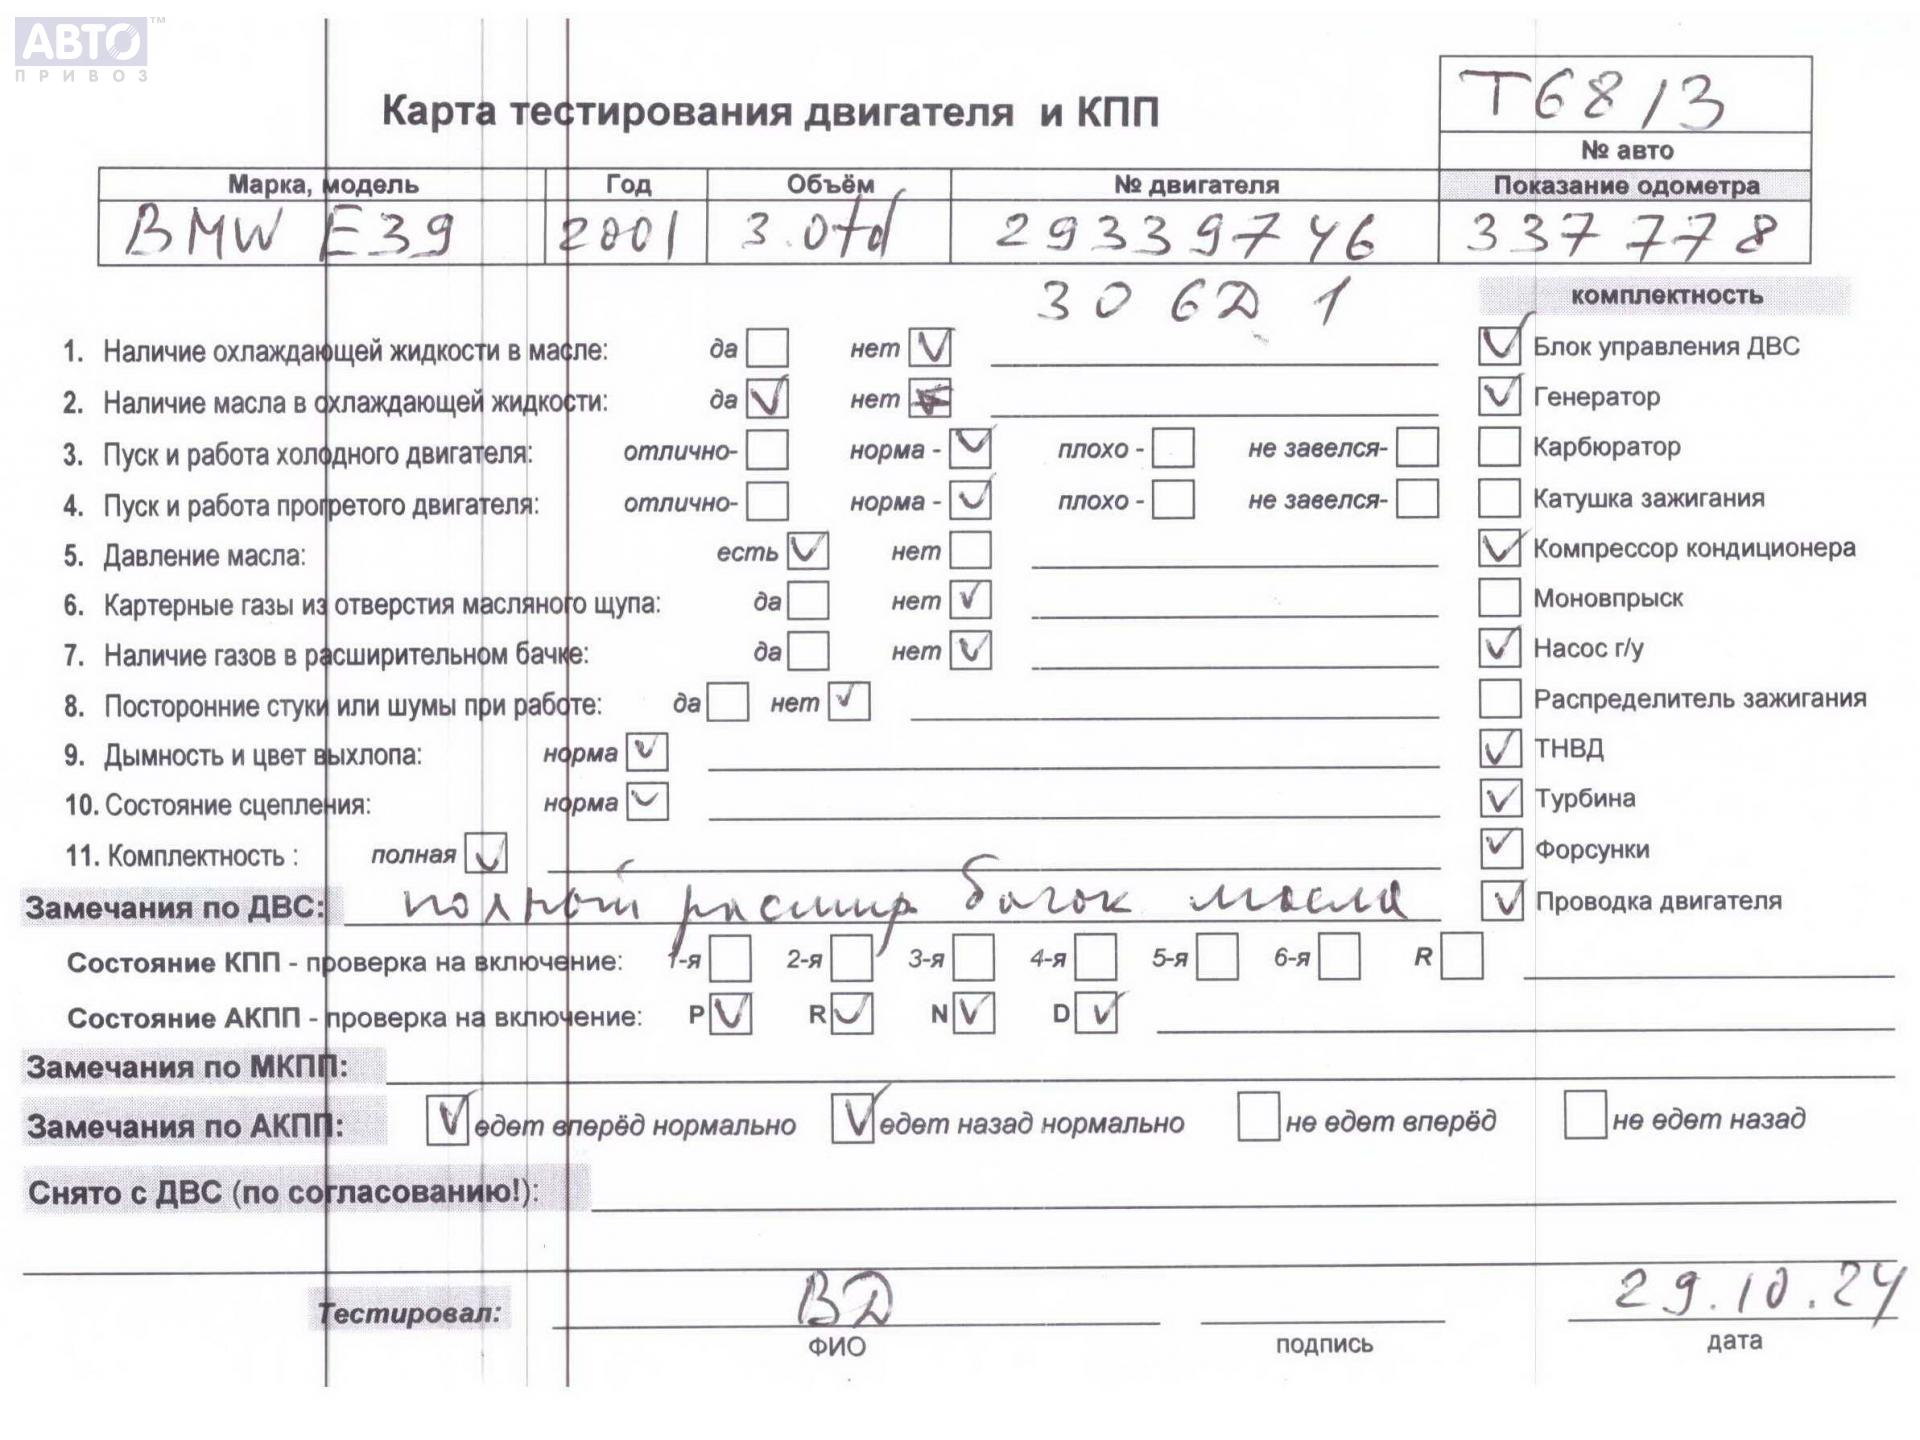 АВТО ТМ
ПРИВОЗ
Карта тестирования двигателя и КПП
Т6813
№ авто
Марка, модель Год Объём № двигателя Показание одометра
BMW E39 2001 3.0td 29339746 337 778
306D1
комплектность
1. Наличие охлаждающей жидкости в масле: да нет
2. Наличие масла в охлаждающей жидкости: да нет
3. Пуск и работа холодного двигателя: отлично- норма - плохо - не завелся-
4. Пуск и работа прогретого двигателя: отлично- норма - плохо - не завелся-
5. Давление масла: есть нет
6. Картерные газы из отверстия масляного щупа: да нет
7. Наличие газов в расширительном бачке: да нет
8. Посторонние стуки или шумы при работе: да нет
9. Дымность и цвет выхлопа: норма
10. Состояние сцепления: норма
11. Комплектность : полная
Блок управления ДВС
Генератор
Карбюратор
Катушка зажигания
Компрессор кондиционера
Моновпрыск
Насос г/у
Распределитель зажигания
ТНВД
Турбина
Форсунки
Проводка двигателя
Замечания по ДВС: полный расшир бачок масла
Состояние КПП - проверка на включение: 1-я 2-я 3-я 4-я 5-я 6-я R
Состояние АКПП - проверка на включение: P R N D
Замечания по МКПП:
Замечания по АКПП: едет вперёд нормально едет назад нормально не едет вперёд не едет назад
Снято с ДВС (по согласованию!):
Тестировал: ВД 29.10.24
ФИО подпись дата